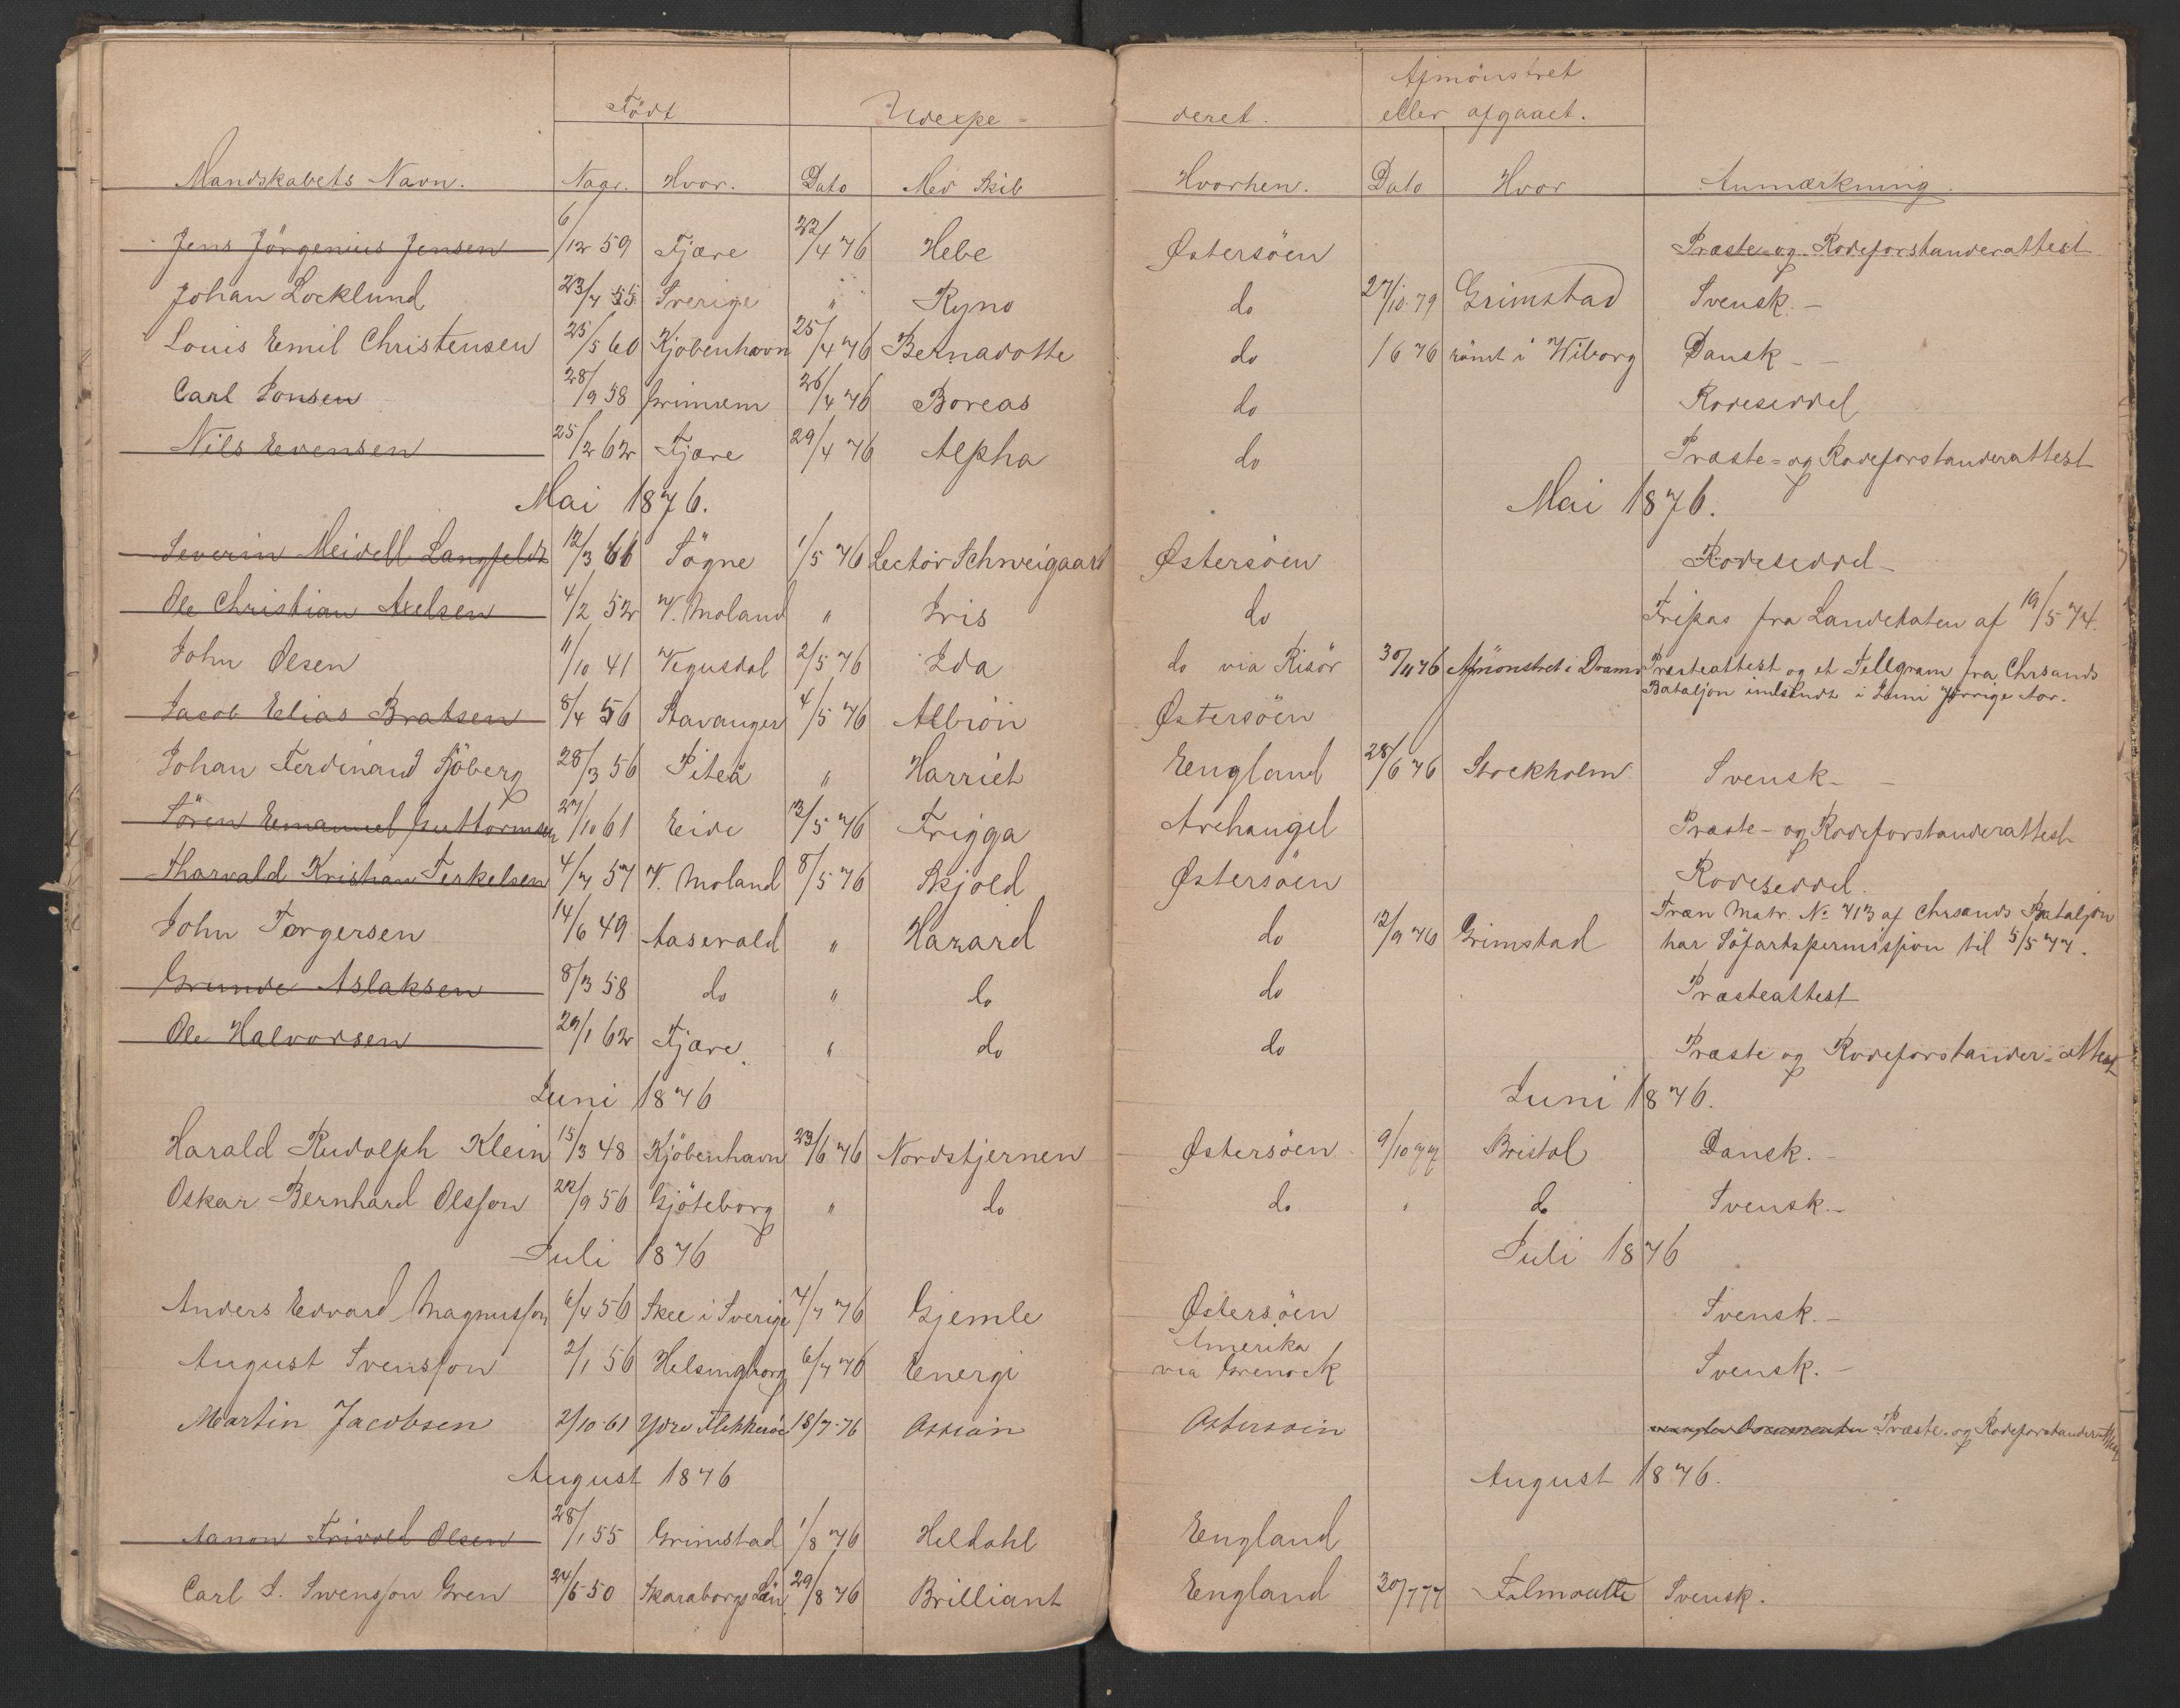 Født Udexpe- deret. Afmönstret
eller afgaaet.
Mandskabets Navn. Naar. Hvor. Dato Med Skib Hvorhen. Dato Hvor Anmærkning.
Jens Jörgenius Jensen 6/12 59 Fjære 22/4 76 Hebe Østersöen Præste- og Rodeforstanderattest
Johan Locklund 23/4 55 Sverige " Ryno do 27/10 79 Grimstad Svensk. –
Louis Emil Christensen 25/5 60 Kjöbenhavn 25/4 76 Bernadotte do 1 6 76 römt i Wiborg Dansk –
Carl Jonsen 28/9 58 26/4 76 Boreas do Rodeseddel
Nils Evensen 25/12 62 Fjære 29/4 76 Alpha do Præste- og Rodeforstanderattest
Mai 1876. Mai 1876.
Severin Meidell Langfeldt 12/3 61 Sögne 1/5 76 Lector Schweigaard Østersöen Rodeseddel –
Ole Christian Axelsen 4/2 52 V. Moland " Iris do Fripas fra Landetaten af 19/5 74.
John Olsen 11/10 41 Vegusdal 2/5 76 Ida do via Risör 30/11 76 Afmönstret i Dramn Præsteattest og et Tellgram fra Chrsands
Bataljon indsendt i Juni forrige Aar.
Jacob Elias Bratsen 8/4 56 Stavanger 4/5 76 Albion Østersöen
Johan Ferdinand Sjöberg 28/3 56 Piteå " Harriet England 28/6 76 Stockholm Svensk –
Sören Emanuel Guttormsen 27/10 61 Eide 13/5 76 Frigga Archangel Præste- og Rodeforstanderattest
Tharvald Kristian Terkelsen 4/7 57 V. Moland 8/5 76 Skjold Østersöen Rodeseddel.
John Torgersen 14/6 49 Aaserald " Hazard do 12/9 76 Grimstad Træn Matr. No 713 af Chrsands Bataljon
har Söfartspermission til 5/5 77.
Grunde Aslaksen 8/3 58 do " do do Præsteattest
Ole Halvorsen 29/1 62 Fjære. " do do Præste og Rodeforstander-attest
Juni 1876 Juni 1876.
Harald Rudolph Klein 15/3 48 Kjöbenhavn 23/6 76 Nordstjernen Østersöen 9/10 77 Bristol Dansk. –
Oskar Bernhard Olsson 22/9 56 Gjöteborg " do do " do Svensk. –
Juli 1876 Juli 1876
Anders Edvard Magnusson 6/4 56 Skee i Sverige 4/7 76 Gjemle Østersöen Svensk. –
August Svensson 2/1 56 Helsingborg 6/7 76 Energi Amerika
via Grenock Svensk. –
Martin Jacobsen 2/10 61 Ydre Flekkeröe 18/7 76 Ossian Östersöin Præste- og Rodeforstanderattest
August 1876 August 1876.
Aanon Trivold Olsen 28/1 55 Grimstad 1/8 76 Heldahl England
Carl J. Swensson Gren 24/5 50 Skaraborgs Län 29/8 76 Brilliant England 30/7 77 Falmouth Svensk.